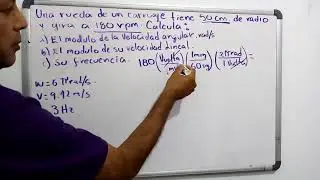 Una rueda de un carruaje tiene 50 cm de radio
y gira a 180 rpm. Calcula:
a) El modulo de la velocidad angular. rad/s
b) El modulo de su velocidad lineal.
c) Su frecuencia. 180 (Vuelta/min) (1min/60sg) (2πrad/1Vuelta) =
W = 6πrad/s
V = 9.42 m/s
3 Hz